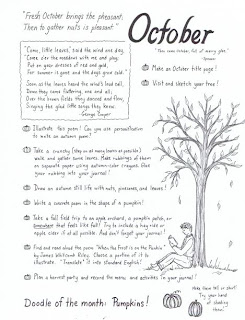 "Fresh October brings the pheasant,
Then to gather nuts is pleasant."
October
"Then came October, full of merry glee."
-Spenser
"Come, little leaves," said the wind one day,
"Come o'er the meadows with me and play;
Put on your dresses of red and gold,
For summer is gone and the days grow cold."
Soon as the leaves heard the wind's loud call,
Down they came fluttering, one and all;
Over the brown fields they danced and flew,
Singing the glad little songs they knew.
-George Cooper
Make an October title page!
Visit and sketch your tree!
Illustrate this poem! Can you use personification
to write an autumn poem?
Take a crunchy (step on as many leaves as possible)
walk and gather some leaves. Make rubbings of them
on separate paper using autumn-color crayons. Glue
your rubbing into your journal!
Draw an autumn still life with nuts, pinecones, and leaves!
Write a concrete poem in the shape of a pumpkin!
Take a fall field trip to an apple orchard, a pumpkin patch, or
somewhere that feels like fall! Try to include a hay ride or
apple cider if at all possible. And don't forget your journal!
Find and read aloud the poem "When the Frost is on the Punkin"
by James Whitcomb Riley. Choose a portion of it to
illustrate. "Translate" it into standard English!
Plan a harvest party and record the menu and activities in your journal!
Doodle of the month: Pumpkins!
Make them tall or short!
Try your hand
at shading
them!